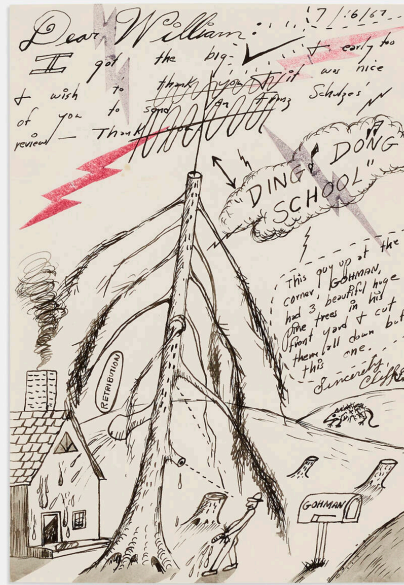 Dear William:
7/16/67
I got the big ✓ & early too
& wish to thank you it was nice
of you to send an Schulzes'
review — Thank you
"DING DONG
SCHOOL"
This guy up at the
corner, GOHMAN,
had 3 beautiful huge
pine trees in his
front yard & cut
them all down but
this one...
Sincerely,
RETRIBUTION
GOHMAN